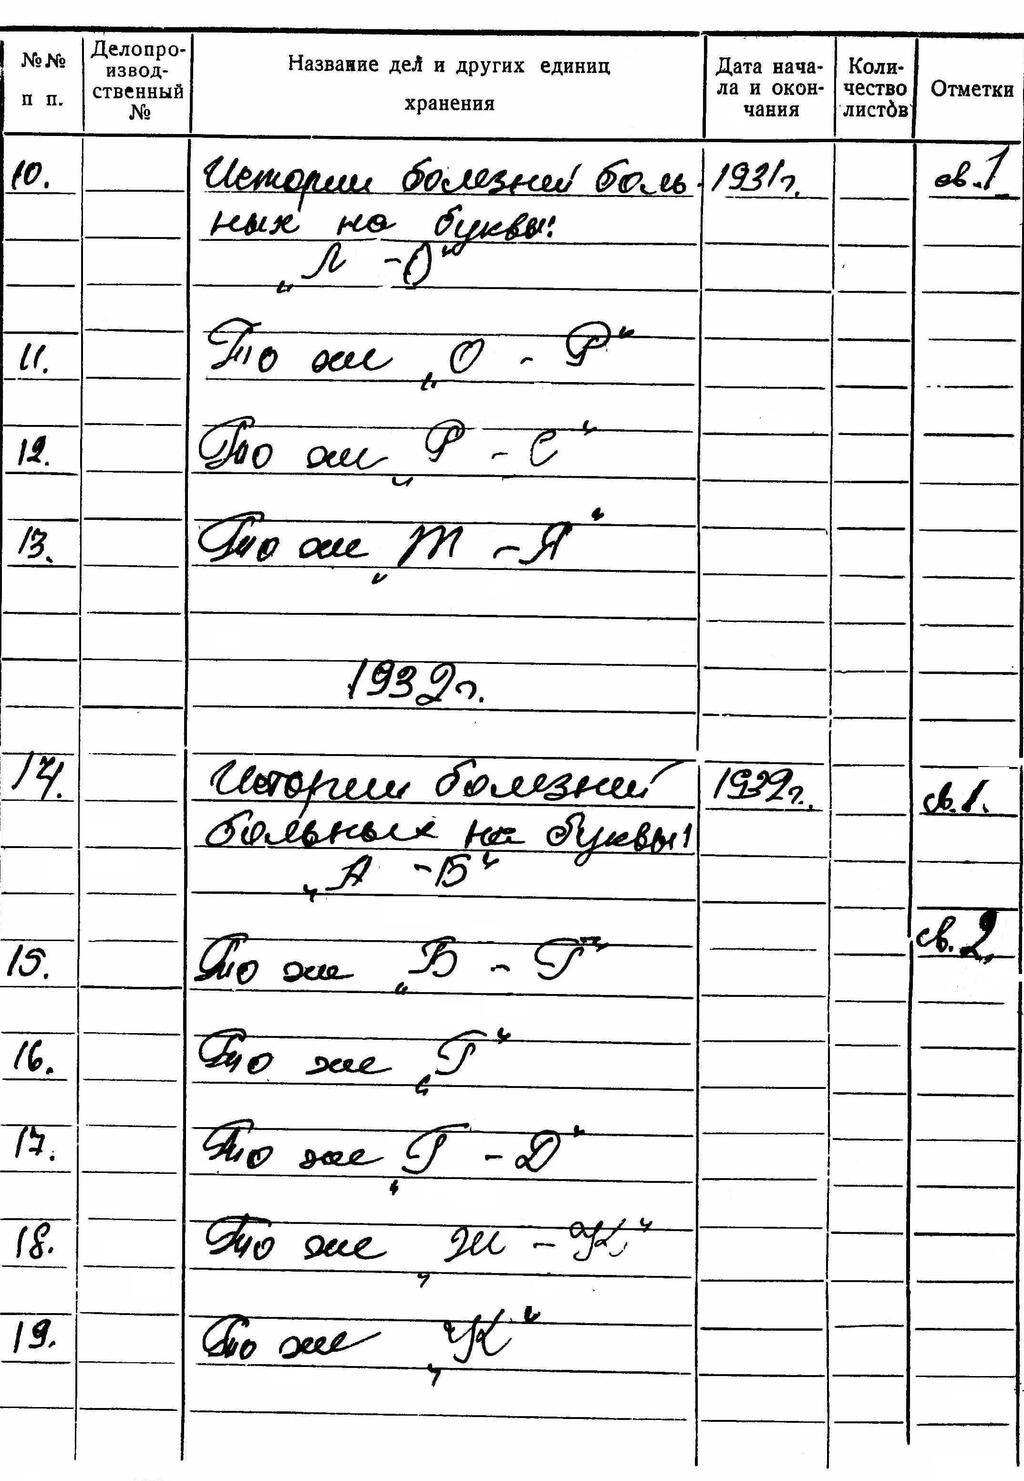 №№ п п. Делопро-изводственный № Название дел и других единиц хранения Дата начала и окончания Количество листов Отметки
10. Истории болезней боль- 1931г. св.1
ных на буквы:
„Л - О“
11. То же „О - Р“
12. То же „Р - С“
13. То же „Т - Я“
1932г.
14. Истории болезней 1932г. св.1.
больных на буквы:
„А - Б“
св.2.
15. То же „Б - Г“
16. То же „Г“
17. То же „Г - Д“
18. То же „Ж - К“
19. То же „К“